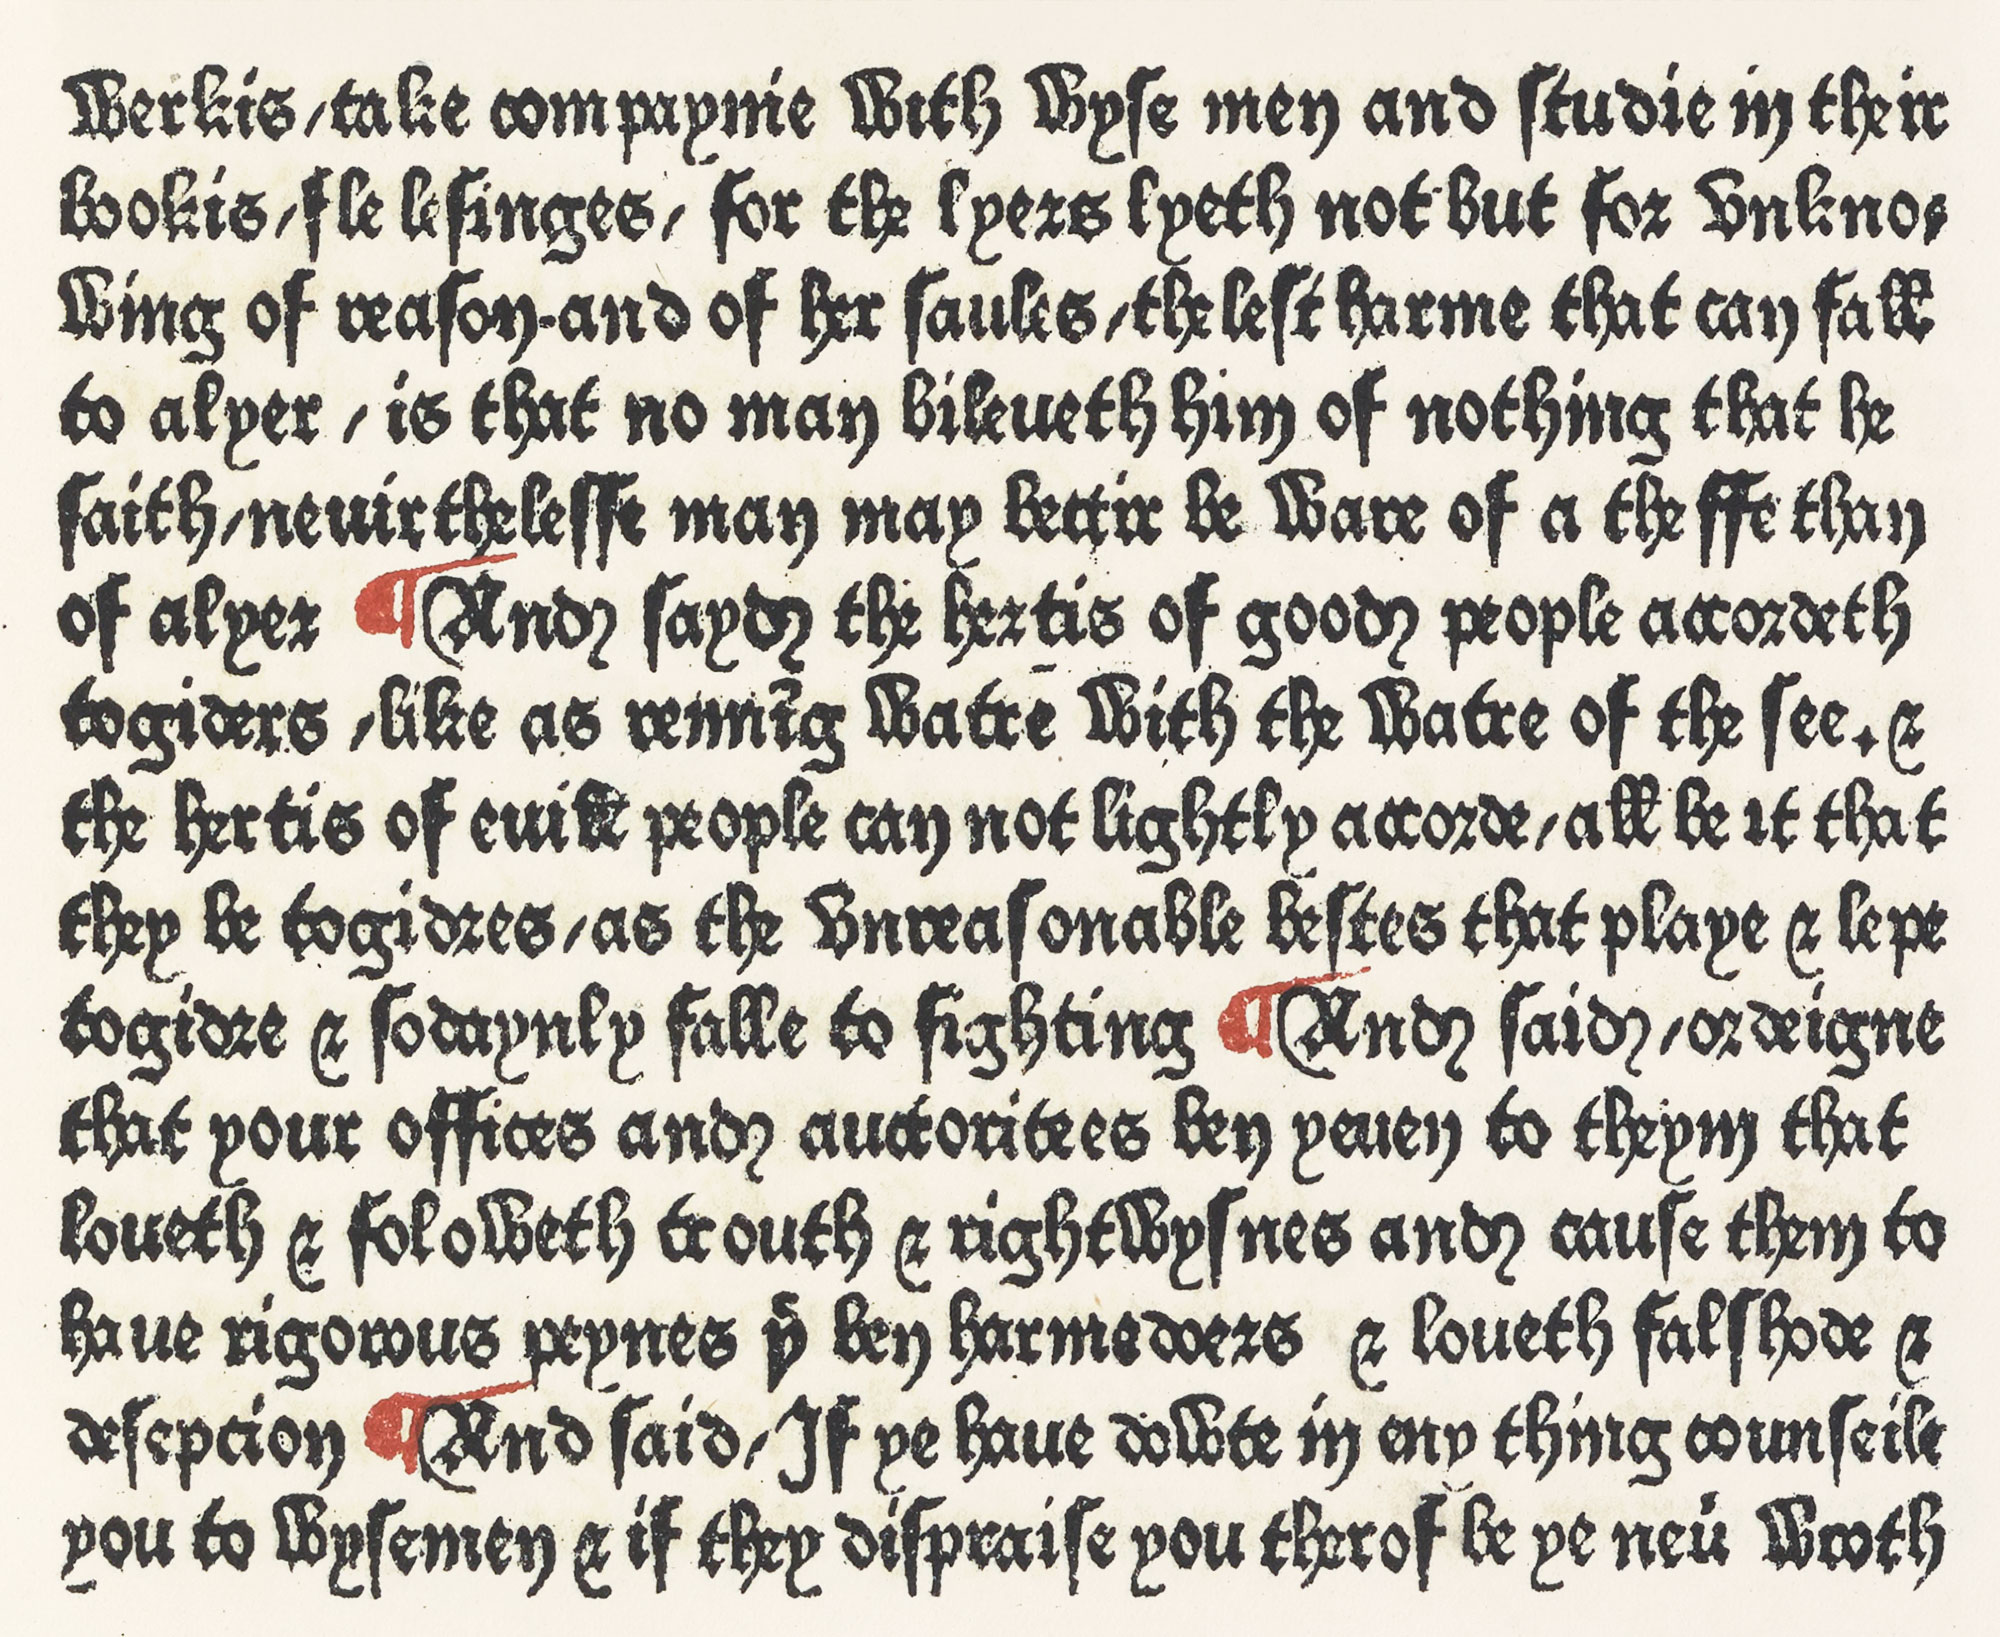 Werkis/take compaynie With Wyse men and studie in their
bookis/fle lesinges/ for the lyers lyeth not but for Vnkno⸗
Wing of reason-and of her saules/the lest harme that can fall
to alyer / is that no man bileueth him of nothing that he
saith/neuirthelesse man may bettir be Ware of a theffe than
of alyer ¶ And sayd the hertis of good people accordeth
togiders /like as rennīg Watre With the Watre of the see. &
the hertis of euill people can not lightly accorde/all be it that
they be togidres/as the Vnreasonable bestes that playe & lepe
togidre & sodaynly falle to fighting ¶ And said/ordeigne
that your offices and auctoritees ben yeuen to theym that
loueth & foloWeth trouth & rightWysnes and cause them to
haue rigorous peynes yͭ ben harmedoers & loueth falshode &
desepcion ¶ And said/If ye haue doWte in eny thing counseile
you to Wysemen & if they dispraise you therof be ye neu̓ Wroth